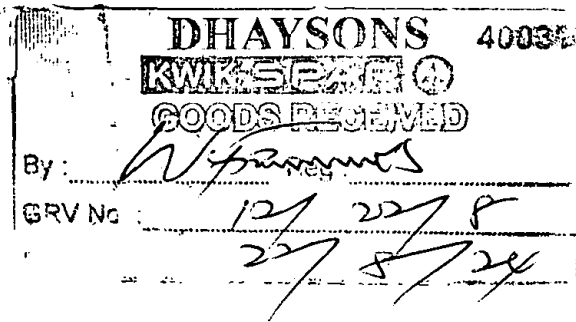 DHAYSONS
KWIK SPAR
GOODS RECEIVED
By :
GRV No : 12/ 22/8
22/8/24